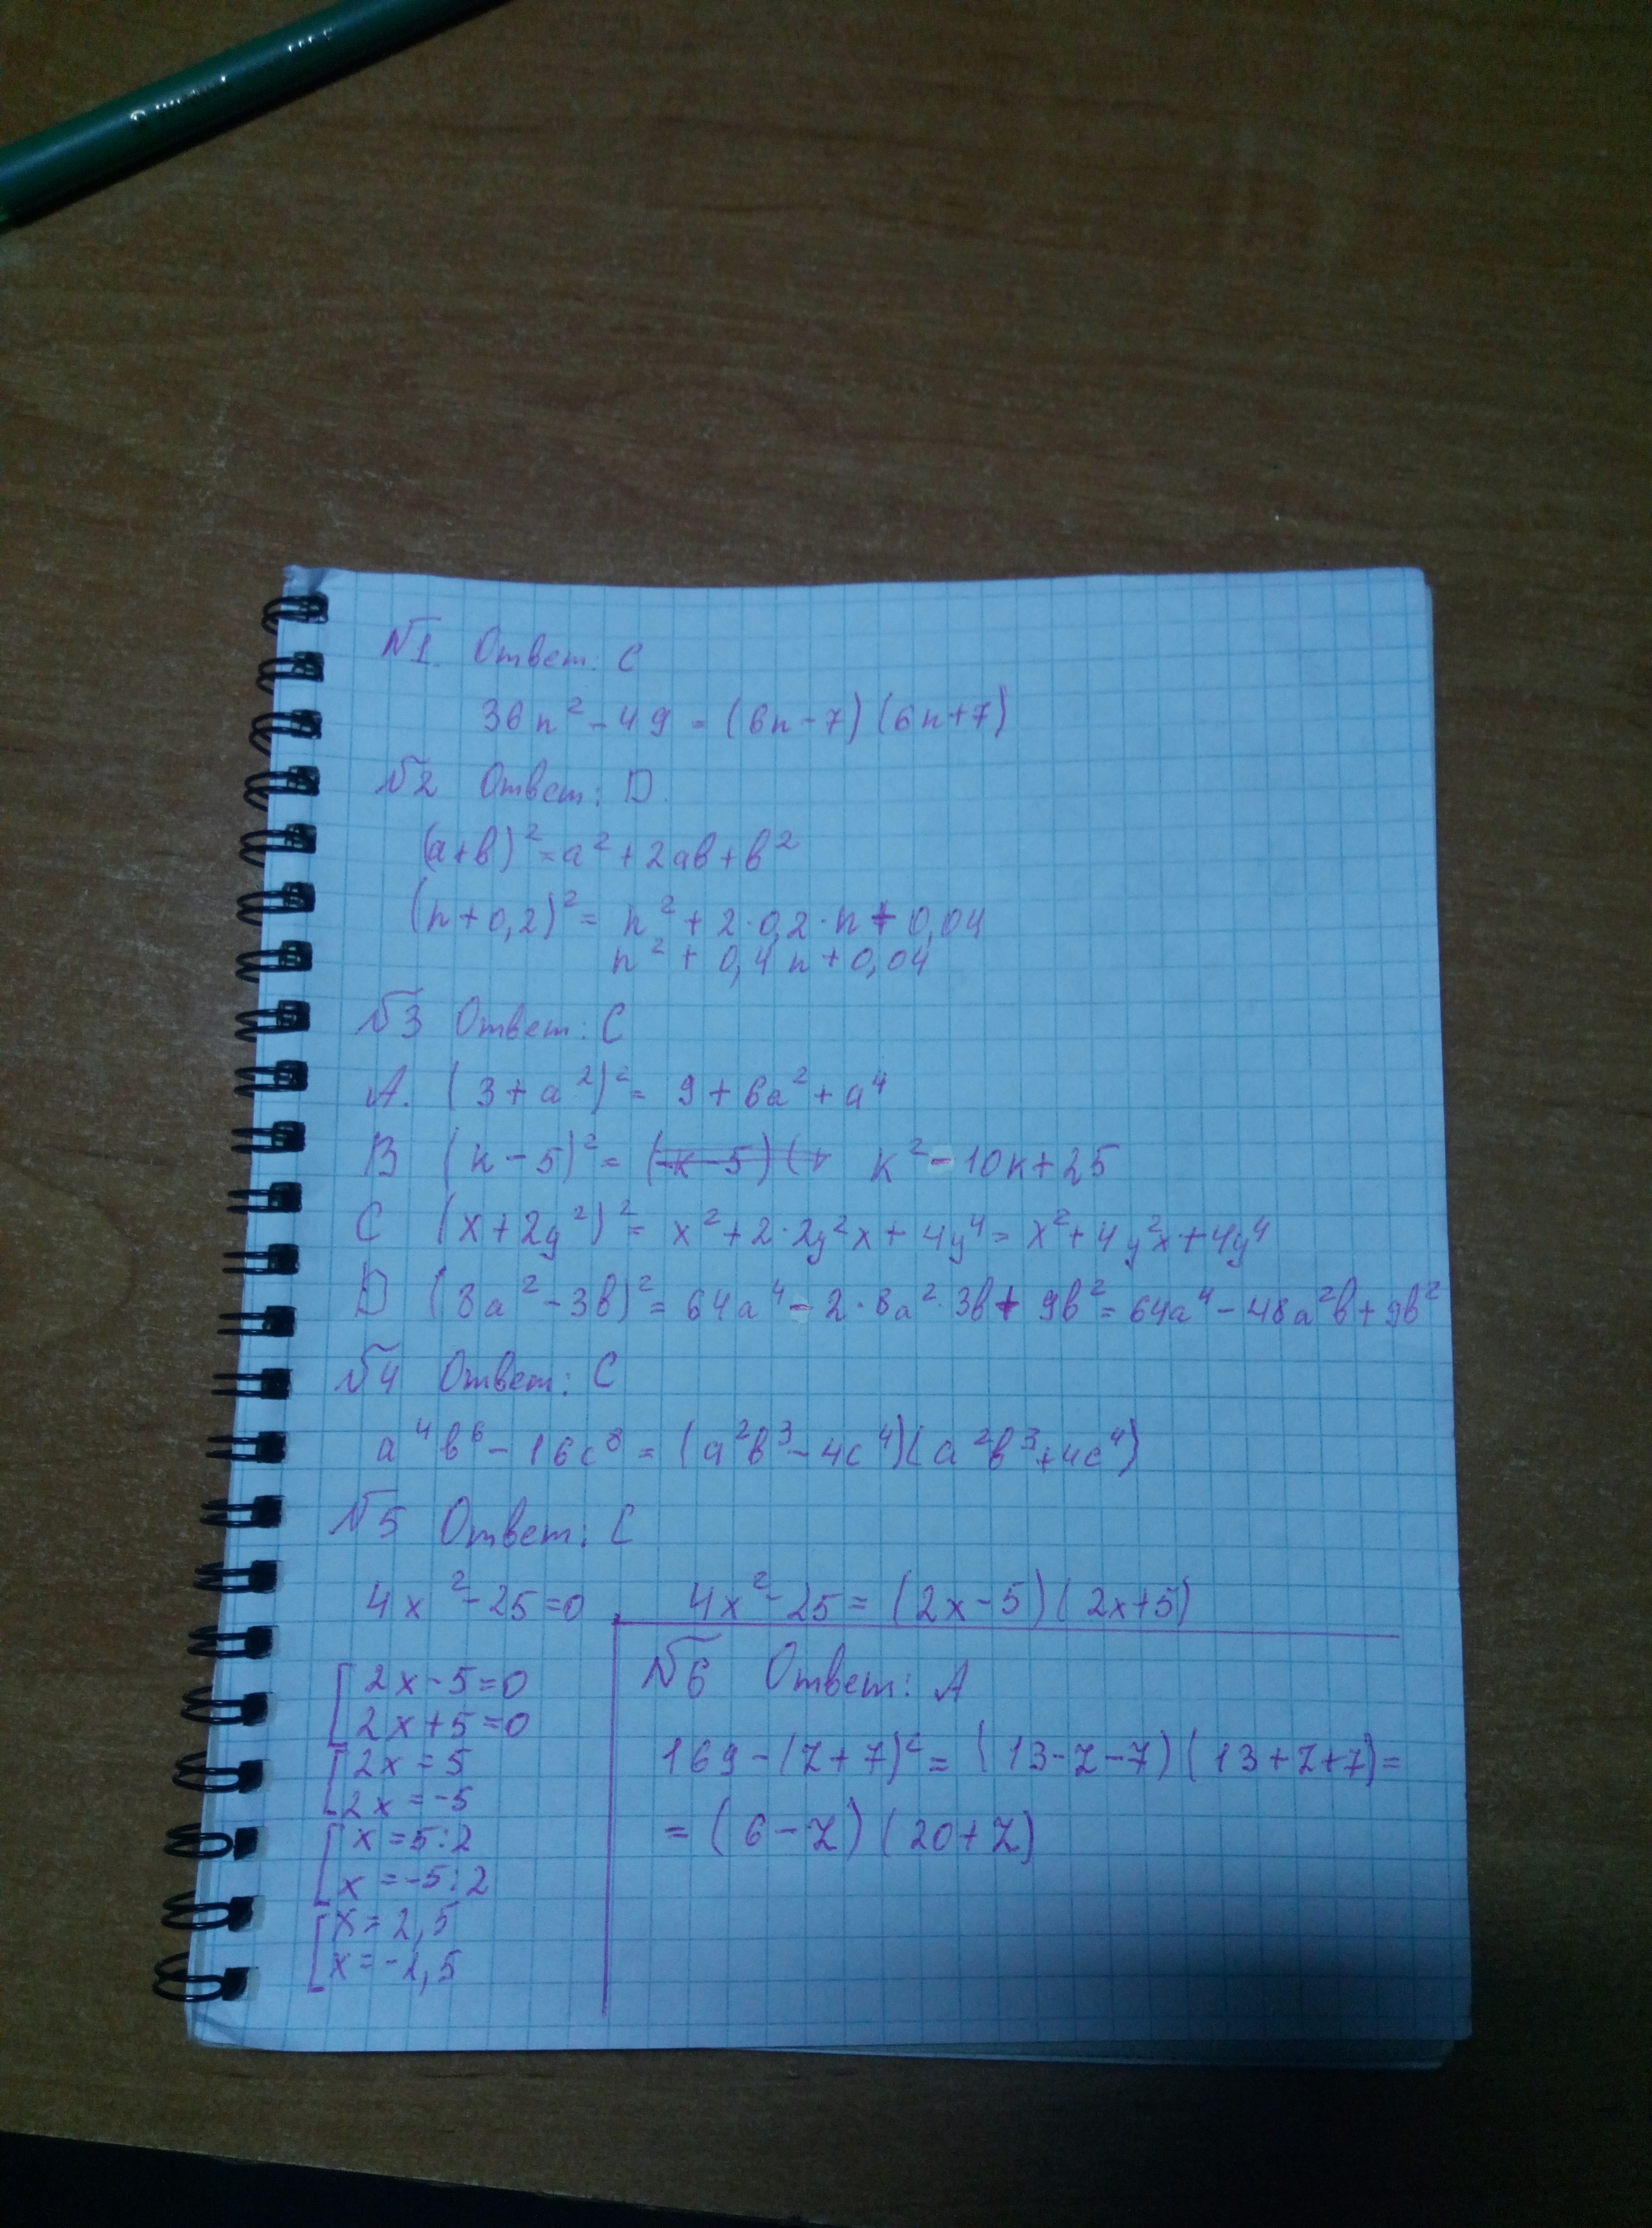 №1. Ответ: С
36n² - 49 = (6n - 7)(6n + 7)
№2 Ответ: D.
(a+b)² = a² + 2ab + b²
(n + 0,2)² = n² + 2·0,2·n + 0,04
n² + 0,4n + 0,04
№3 Ответ: С
A. (3 + a²)² = 9 + 6a² + a⁴
B (k - 5)² = k² - 10k + 25
C (x + 2y²)² = x² + 2·2y²x + 4y⁴ = x² + 4y²x + 4y⁴
D (8a² - 3b)² = 64a⁴ - 2·8a²·3b + 9b² = 64a⁴ - 48a²b + 9b²
№4 Ответ: С
a⁴b⁶ - 16c⁸ = (a²b³ - 4c⁴)(a²b³ + 4c⁴)
№5 Ответ: С
4x² - 25 = 0 4x² - 25 = (2x - 5)(2x + 5)
[2x - 5 = 0
2x + 5 = 0
[2x = 5
2x = -5
[x = 5:2
x = -5:2
[x = 2,5
x = -2,5
№6 Ответ: А
169 - (z + 7)² = (13 - z - 7)(13 + z + 7) =
= (6 - z)(20 + z)